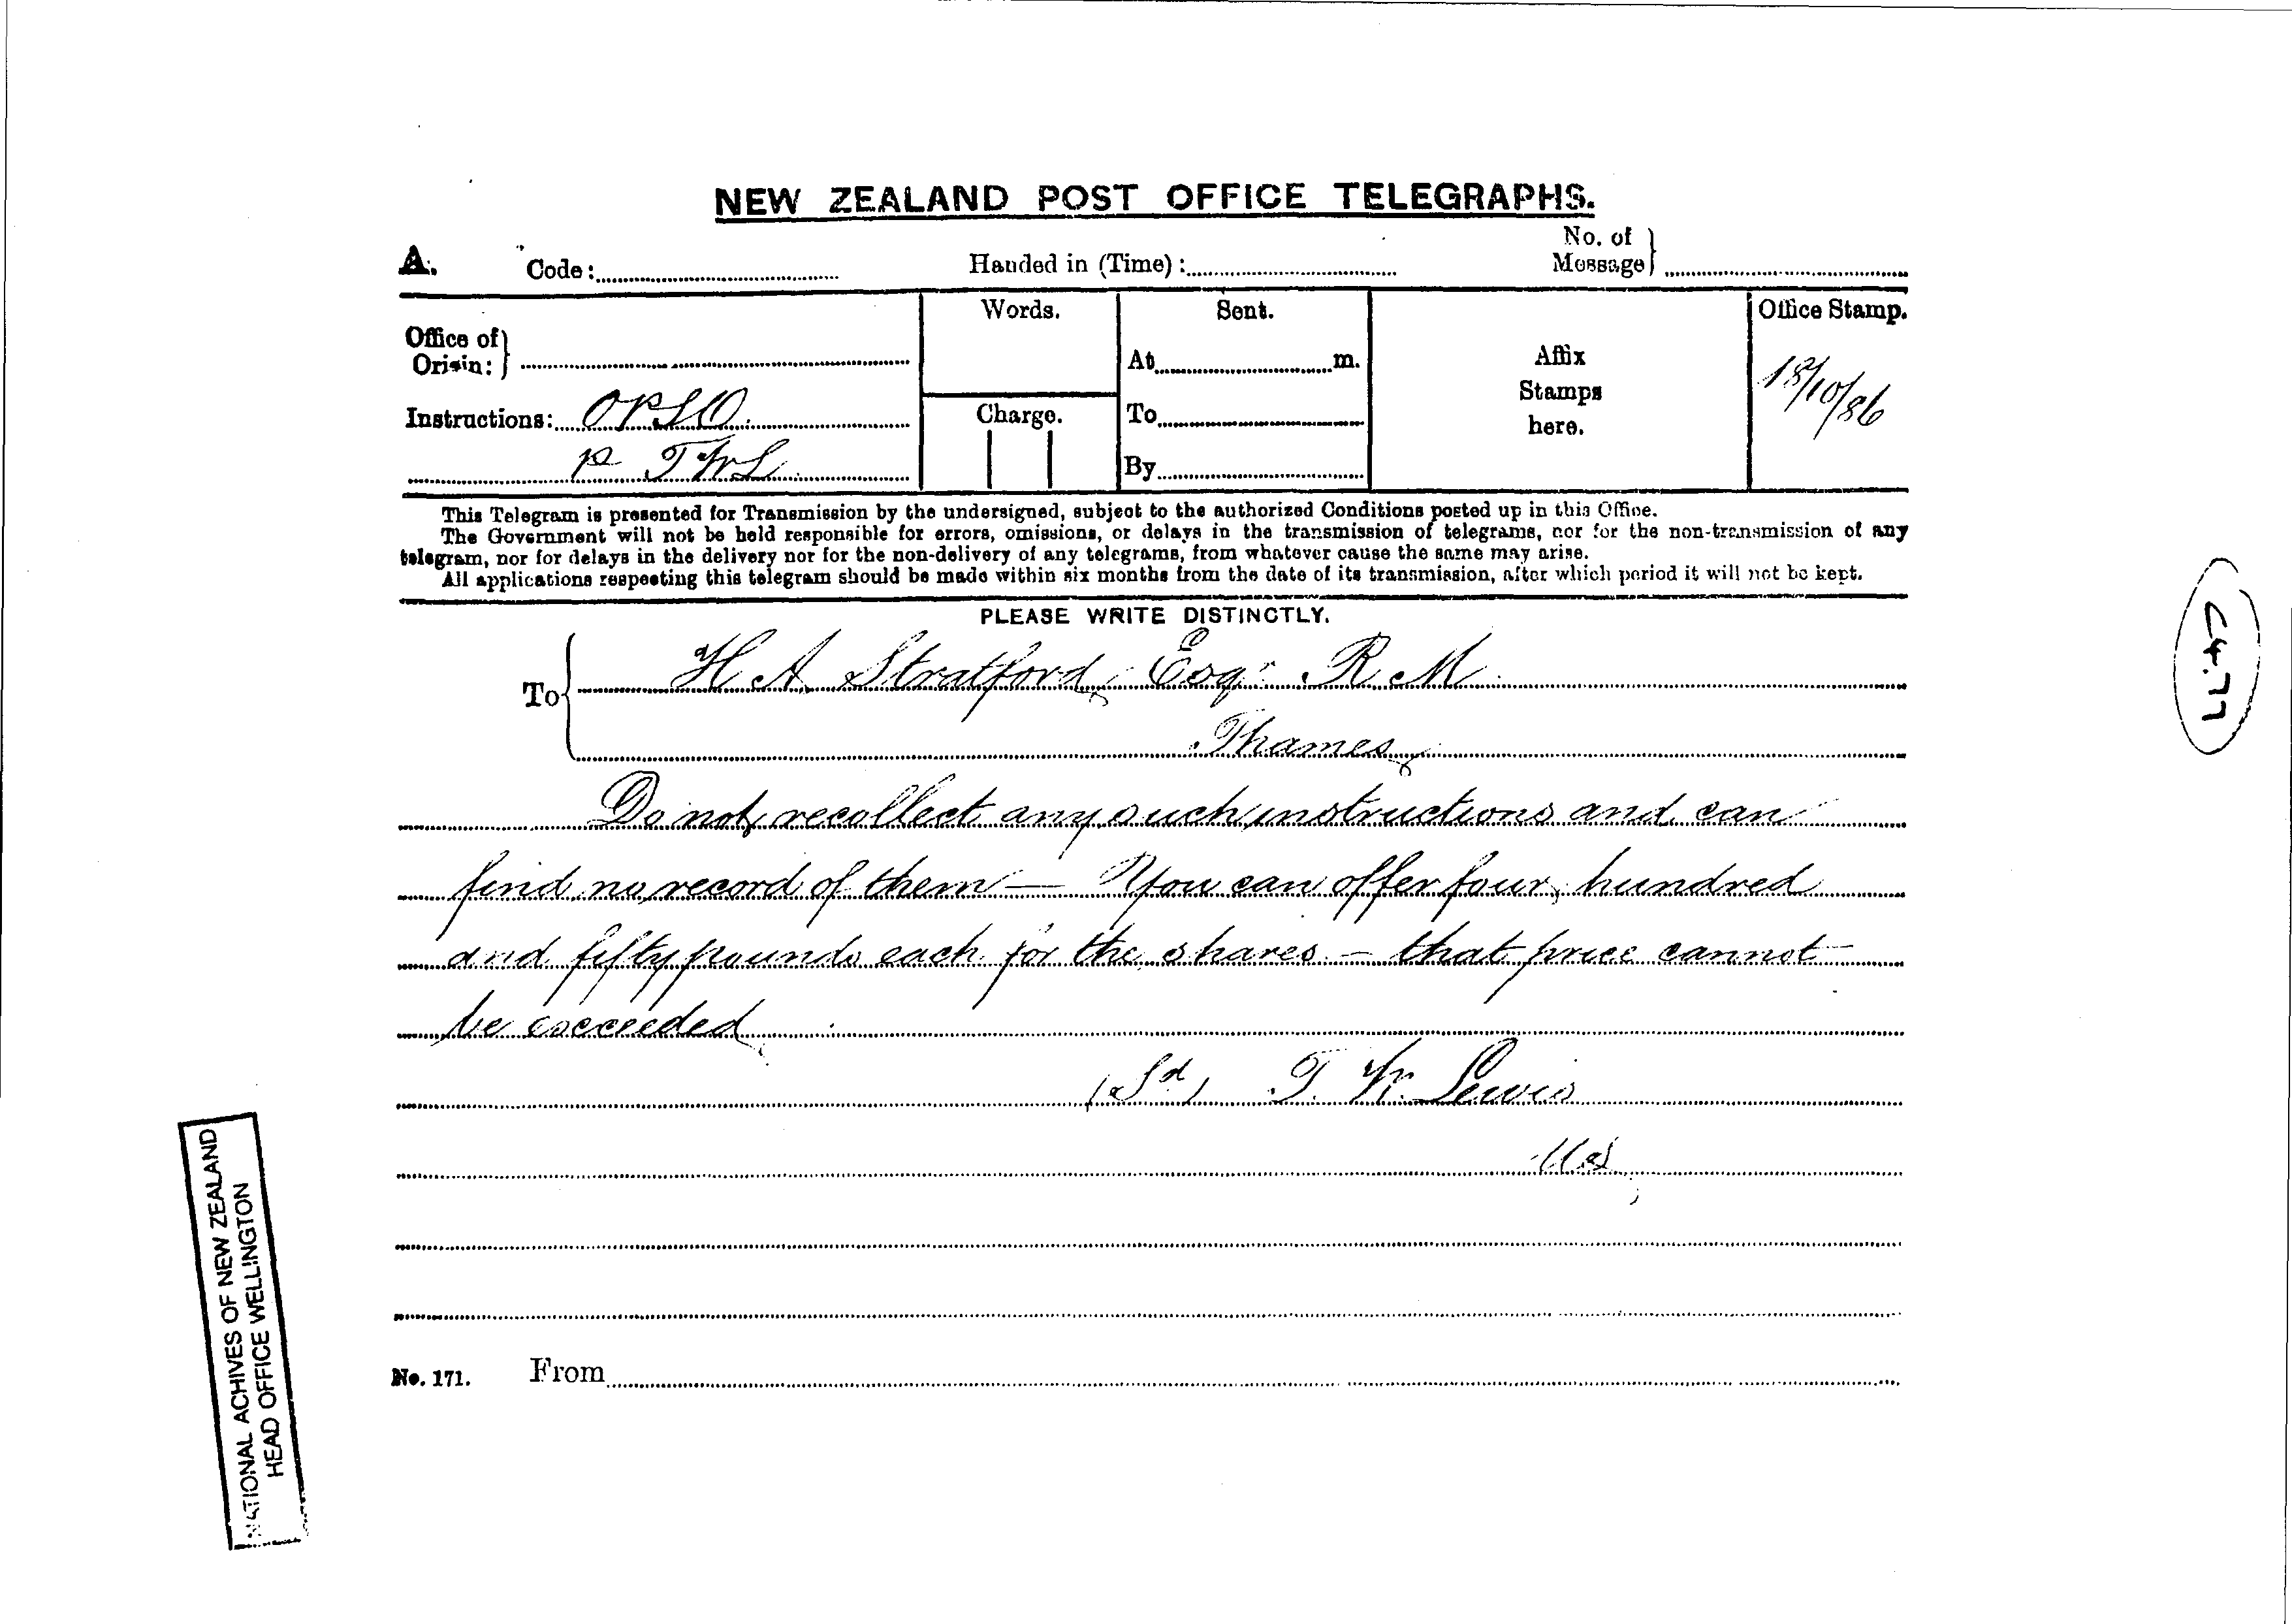 NEW ZEALAND POST OFFICE TELEGRAPHS.
A. Code: Handed in (Time): No. of Message
Words. Sent. Office Stamp.
Office of Origin: At m. Affix Stamps here. 18/10/86
Instructions: OPSO. Charge. To
p TWL By
This Telegram is presented for Transmission by the undersigned, subject to the authorized Conditions posted up in this Office.
The Government will not be held responsible for errors, omissions, or delays in the transmission of telegrams, nor for the non-transmission of any
telegram, nor for delays in the delivery nor for the non-delivery of any telegrams, from whatever cause the same may arise.
All applications respecting this telegram should be made within six months from the date of its transmission, after which period it will not be kept.
PLEASE WRITE DISTINCTLY.
To H A Stratford, Esqr. R. M.
Thames
Do not recollect any such instructions and can
find no record of them — You can offer four hundred
and fifty pounds each for the shares — that price cannot
be exceeded
(Sd) T. W. Lewis
No. 171. From
NATIONAL ACHIVES OF NEW ZEALAND
HEAD OFFICE WELLINGTON